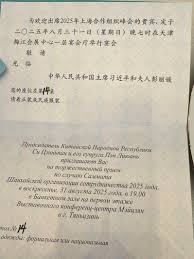 为欢迎出席2025年上海合作组织峰会的贵宾，定于
二〇二五年八月三十一日（星期日）晚七时在天津
梅江会展中心一层宴会厅举行宴会
敬请
光临
中华人民共和国主席习近平和夫人彭丽媛
您的座位在第14桌
请着正装或民族服装
Председатель Китайской Народной Республики
Си Цзиньпин и его супруга Пэн Лиюань
приглашают Вас
на торжественный прием
по случаю Саммита
Шанхайской организации сотрудничества 2025 года,
в воскресенье, 31 августа 2025 года, в 19:00
в Банкетном зале на первом этаже
Выставочного конференц-центра Мэйцзян
в г. Тяньцзинь
14
одежды: формальная или национальная